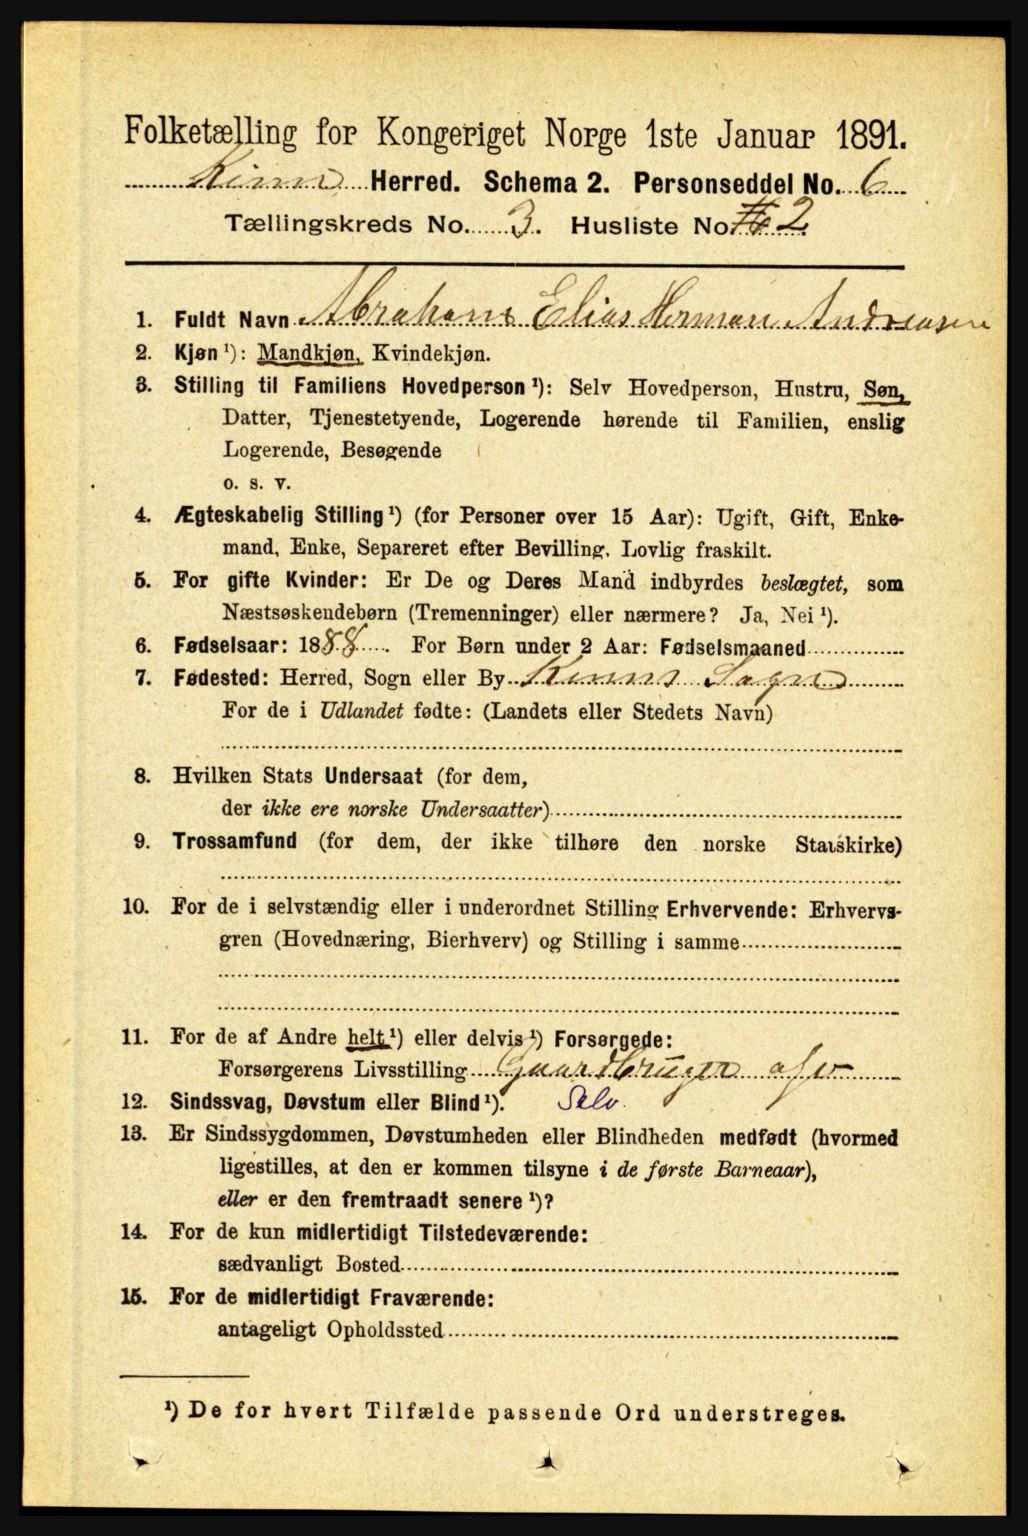 Folketælling for Kongeriget Norge 1ste Januar 1891.
Kinn Herred. Schema 2. Personseddel No. 6
Tællingskreds No. 3. Husliste No. 2
1. Fuldt Navn Abraham Elias Herman Andreasen
2. Kjøn ¹): Mandkjøn, Kvindekjøn.
3. Stilling til Familiens Hovedperson ¹): Selv Hovedperson, Hustru, Søn,
Datter, Tjenestetyende, Logerende hørende til Familien, enslig
Logerende, Besøgende
o. s. v.
4. Ægteskabelig Stilling ¹) (for Personer over 15 Aar): Ugift, Gift, Enke-
mand, Enke, Separeret efter Bevilling. Lovlig fraskilt.
5. For gifte Kvinder: Er De og Deres Mand indbyrdes beslægtet, som
Næstsøskendebørn (Tremenninger) eller nærmere? Ja, Nei ¹).
6. Fødselsaar: 1888. For Børn under 2 Aar: Fødselsmaaned
7. Fødested: Herred, Sogn eller By Kinns Sogn
For de i Udlandet fødte: (Landets eller Stedets Navn)
8. Hvilken Stats Undersaat (for dem,
der ikke ere norske Undersaatter)
9. Trossamfund (for dem, der ikke tilhøre den norske Statskirke)
10. For de i selvstændig eller i underordnet Stilling Erhvervende: Erhvervs-
gren (Hovednæring, Bierhverv) og Stilling i samme
11. For de af Andre helt ¹) eller delvis ¹) Forsørgede:
Forsørgerens Livsstilling Gaardbruger
12. Sindssvag, Døvstum eller Blind ¹). Selv.
13. Er Sindssygdommen, Døvstumheden eller Blindheden medfødt (hvormed
ligestilles, at den er kommen tilsyne i de første Barneaar),
eller er den fremtraadt senere ¹)?
14. For de kun midlertidigt Tilstedeværende:
sædvanligt Bosted
15. For de midlertidigt Fraværende:
antageligt Opholdssted
¹) De for hvert Tilfælde passende Ord understreges.